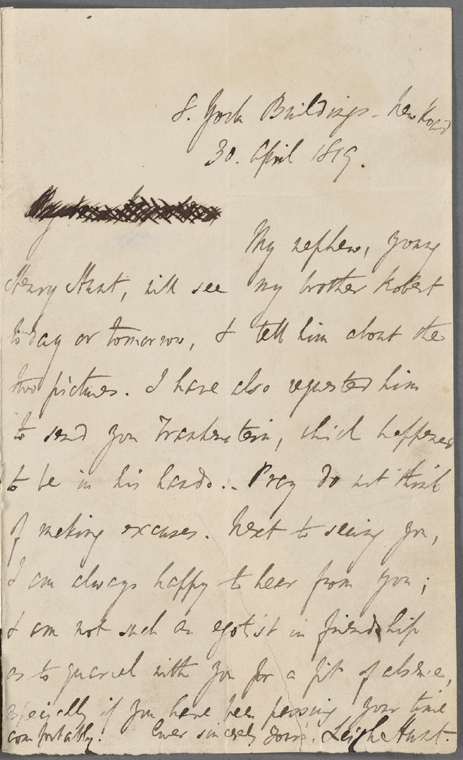 8. York Buildings - New Road
30. April 1819.
My nephew, young
Henry Hunt, will see my brother Robert
today or tomorrow, & tell him about the
two pictures. I have also requested him
to send you Frankenstein, which happened
to be in his hands. . Pray do not think
of making excuses. Next to seeing you,
I am always happy to hear from you;
& am not such an egotist in friendship
as to quarrel with you for a fit of absence,
especially if you have been passing your time
comfortably. Ever sincerely yours, Leigh Hunt.